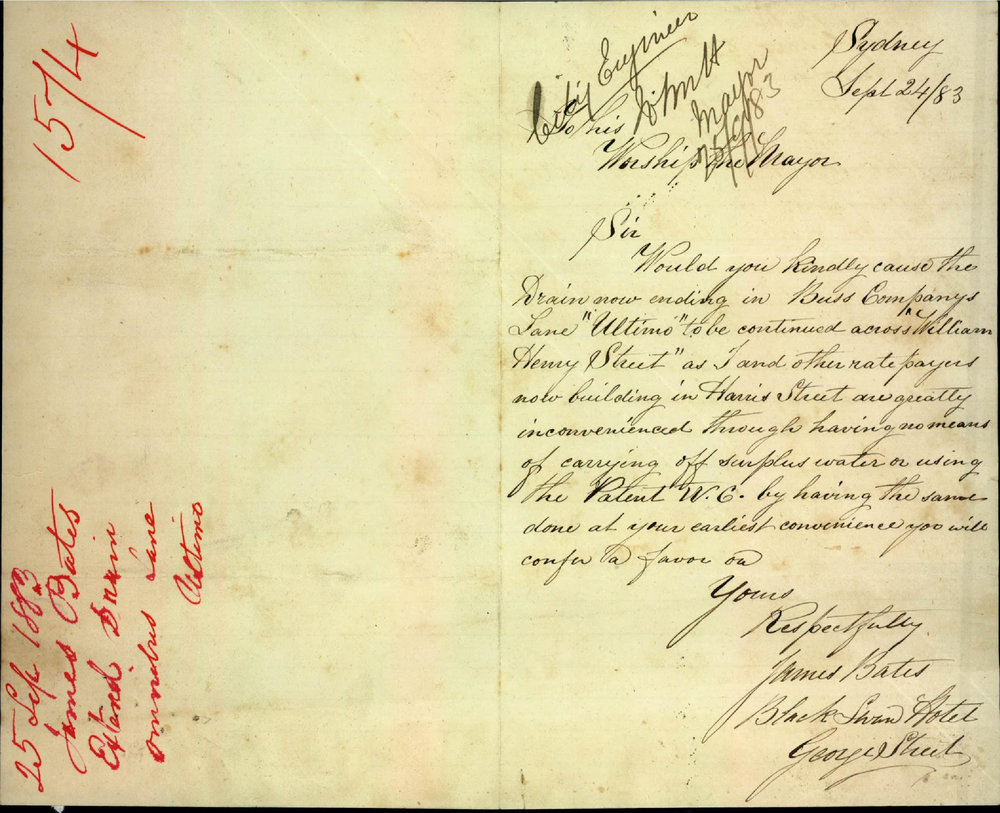 1574
25 Sep 1883
James Bates
Extend Drain
omnibus Lane
Ultimo
City Engineer
Mayor
25/9/83
Sydney
Sept 24/83
To his
Worship the Mayor
Sir
Would you kindly cause the
Drain now ending in Buss Companys
Lane "Ultimo" to be continued across "William
Henry Street" as I and other rate payers
now building in Harris Street are greatly
inconvenienced through having no means
of carrying off surplus water or using
the Patent W.C. by having the same
done at your earliest convenience you will
confer a favor on
Yours
Respectfully
James Bates
Black Swan Hotel
George Street